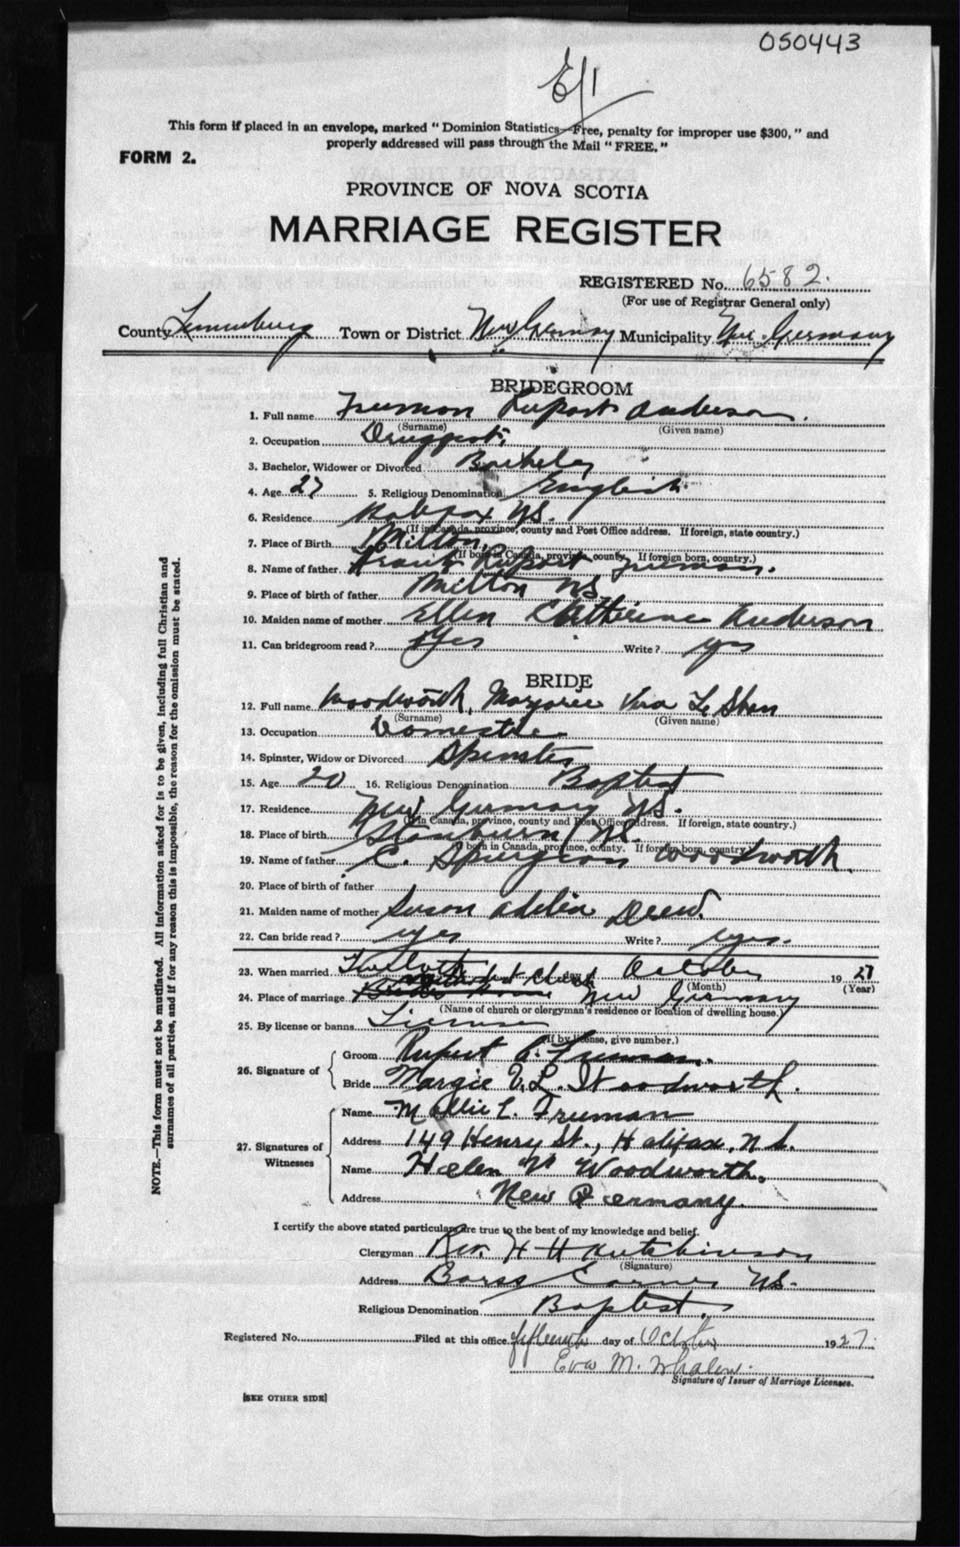 050443
E/1
This form if placed in an envelope, marked "Dominion Statistics—Free, penalty for improper use $300," and
properly addressed will pass through the Mail "FREE."
FORM 2.
PROVINCE OF NOVA SCOTIA
MARRIAGE REGISTER
REGISTERED No. 6582.
(For use of Registrar General only)
County Lunenburg Town or District New Germany Municipality New Germany
BRIDEGROOM
1. Full name Freeman Rupert Anderson.
(Surname) (Given name)
2. Occupation Druggist.
3. Bachelor, Widower or Divorced Bachelor
4. Age 27 5. Religious Denomination English
6. Residence Halifax NS.
(If in Canada, province, county and Post Office address. If foreign, state country.)
7. Place of Birth Milton,
(If born in Canada, province, county. If foreign born, country.)
8. Name of father Frank Rupert Freeman.
9. Place of birth of father Milton NS
10. Maiden name of mother Ellen Catherine Anderson
11. Can bridegroom read? Yes Write? yes
BRIDE
12. Full name Woodworth, Marjorie Vera Le Shon
(Surname) (Given name)
13. Occupation Domestic
14. Spinster, Widow or Divorced Spinster
15. Age 20 16. Religious Denomination Baptist
17. Residence New Germany NS.
(If in Canada, province, county and Post Office address. If foreign, state country.)
18. Place of birth NS
(If born in Canada, province, county. If foreign born, country.)
19. Name of father C. Spurgeon Woodworth.
20. Place of birth of father
21. Maiden name of mother Susan Adelia Drew.
22. Can bride read? yes Write? yes.
23. When married Twelfth day October 1927
(Month) (Year)
24. Place of marriage New Germany
(Name of church or clergyman's residence or location of dwelling house.)
25. By license or banns License
(If by license, give number.)
26. Signature of
Groom Rupert A. Freeman.
Bride Margie V. L. Woodworth.
27. Signatures of Witnesses
Name Mollie L. Freeman
Address 149 Henry St., Halifax, N.S.
Name Helen Woodworth.
Address New Germany.
I certify the above stated particulars are true to the best of my knowledge and belief.
Clergyman Rev. H H Hutchinson
(Signature)
Address Barss Corner NS.
Religious Denomination Baptist.
Registered No. Filed at this office fifteenth day of October 1927.
Eva M. Whalen.
Signature of Issuer of Marriage Licenses.
[SEE OTHER SIDE]
NOTE.—This form must not be mutilated. All information asked for is to be given, including full Christian and
surnames of all parties, and if for any reason this is impossible, the reason for the omission must be stated.